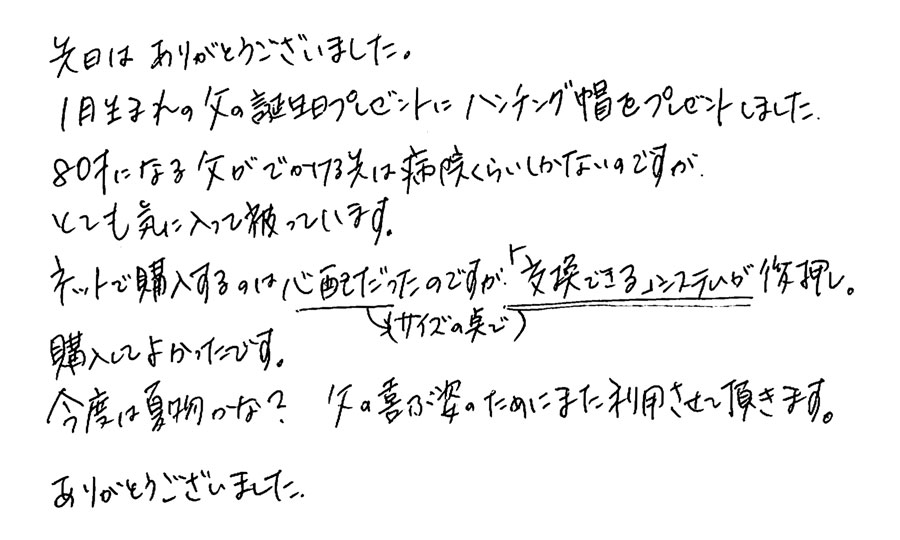 先日は ありがとうございました。
1月生まれの父の誕生日プレゼントに ハンチング帽をプレゼントしました.
80才になる父がでかける先は病院くらいしかないのですが.
とても気に入って被っています。
ネットで購入するのは心配だったのですが、「交換できる」システムが後押し。
(サイズの点で)
購入してよかったです。
今度は夏物かな? 父の喜ぶ姿のためにまた利用させて頂きます。
ありがとうございました.